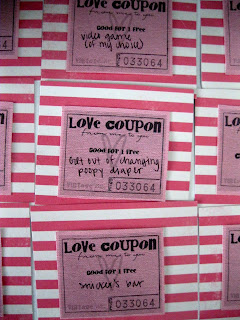 LOVE COUPON
from me to you
GOOD FOR 1 FREE
video game
(of my choice)
033064
LOVE COUPON
from me to you
GOOD FOR 1 FREE
Get out of changing
poopy diaper
033064
LOVE COUPON
from me to you
GOOD FOR 1 FREE
snicker's bar
033064